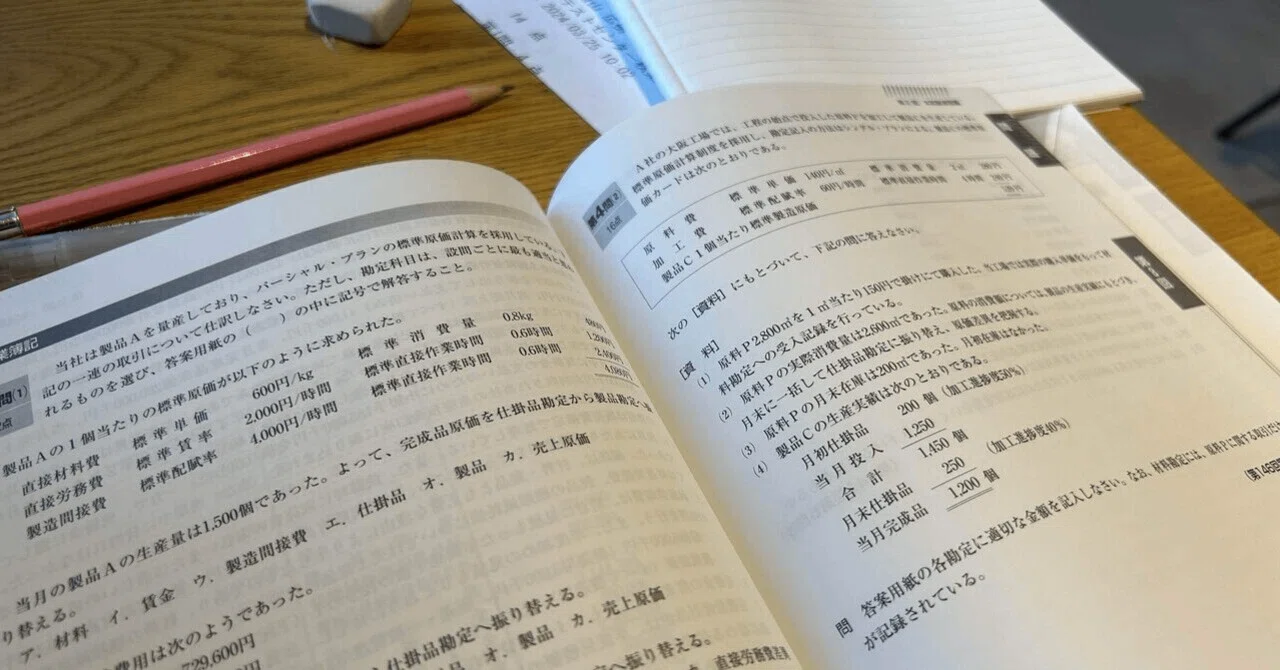 業簿記
問(1)
点
当社は製品Aを量産しており、パーシャル・プランの標準原価計算を採用している。
記の一連の取引について仕訳しなさい。ただし、勘定科目は、設問ごとに最も適当と
れるものを選び、答案用紙の（　）の中に記号で解答すること。
製品Aの1個当たりの標準原価が以下のように求められた。
直接材料費 標準単価 600円/kg 標準消費量 0.8kg 480円
直接労務費 標準賃率 2,000円/時間 標準直接作業時間 0.6時間 1,200円
製造間接費 標準配賦率 4,000円/時間 標準直接作業時間 0.6時間 2,400円
4,080円
当月の製品Aの生産量は1,500個であった。よって、完成品原価を仕掛品勘定から製品勘定へ
り替える。
ア．材料 イ．賃金 ウ．製造間接費 エ．仕掛品 オ．製品 カ．売上原価
費用は次のようであった。
729,600円
仕掛品勘定へ振り替える。
オ．製品 カ．売上原価
定へ振り替える。
カ．直接労務費差異
テストセンター
2024/03/25 10:0
14 点
第4問(2)
16点
A社の大阪工場では、工程の始点で投入した原料Pを加工して製品Cを生産している。
標準原価計算制度を採用し、勘定記入の方法はシングル・プランによる。製品Cの標準原
価カードは次のとおりである。
原料費 標準単価 140円/㎡ 標準消費量 2㎡ 280円
加工費 標準配賦率 60円/時間 標準直接作業時間
製品C1個当たり標準製造原価
次の［資料］にもとづいて、下記の問に答えなさい。
［資料］
(1) 原料P2,800㎡を1㎡当たり150円で掛けにて購入した。当工場では実際の購入単価をもって材
料勘定への受入記録を行っている。
(2) 原料Pの実際消費量は2,600㎡であった。原料の消費額については、製品の生産実績にもとづき、
月末に一括して仕掛品勘定に振り替え、原価差異を把握する。
(3) 原料Pの月末在庫は200㎡であった。月初在庫はなかった。
(4) 製品Cの生産実績は次のとおりである。
月初仕掛品 200 個（加工進捗度50％）
当月投入 1,250
合計 1,450 個
月末仕掛品 250 （加工進捗度40％）
当月完成品 1,200 個
問 答案用紙の各勘定に適切な金額を記入しなさい。なお、材料勘定には、原料Pに関する取引だけ
が記録されている。